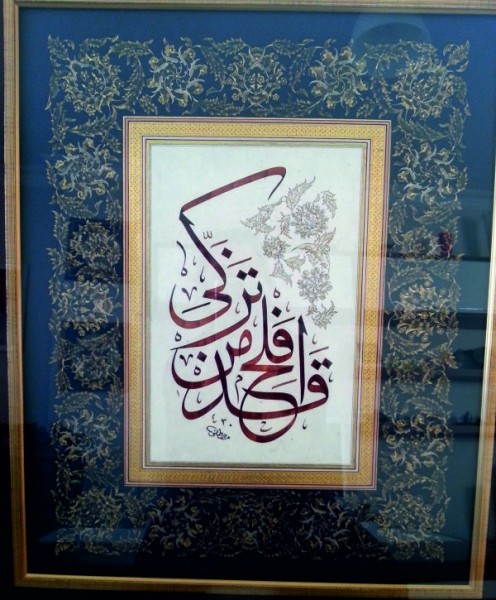 قد افلح من تزكّى